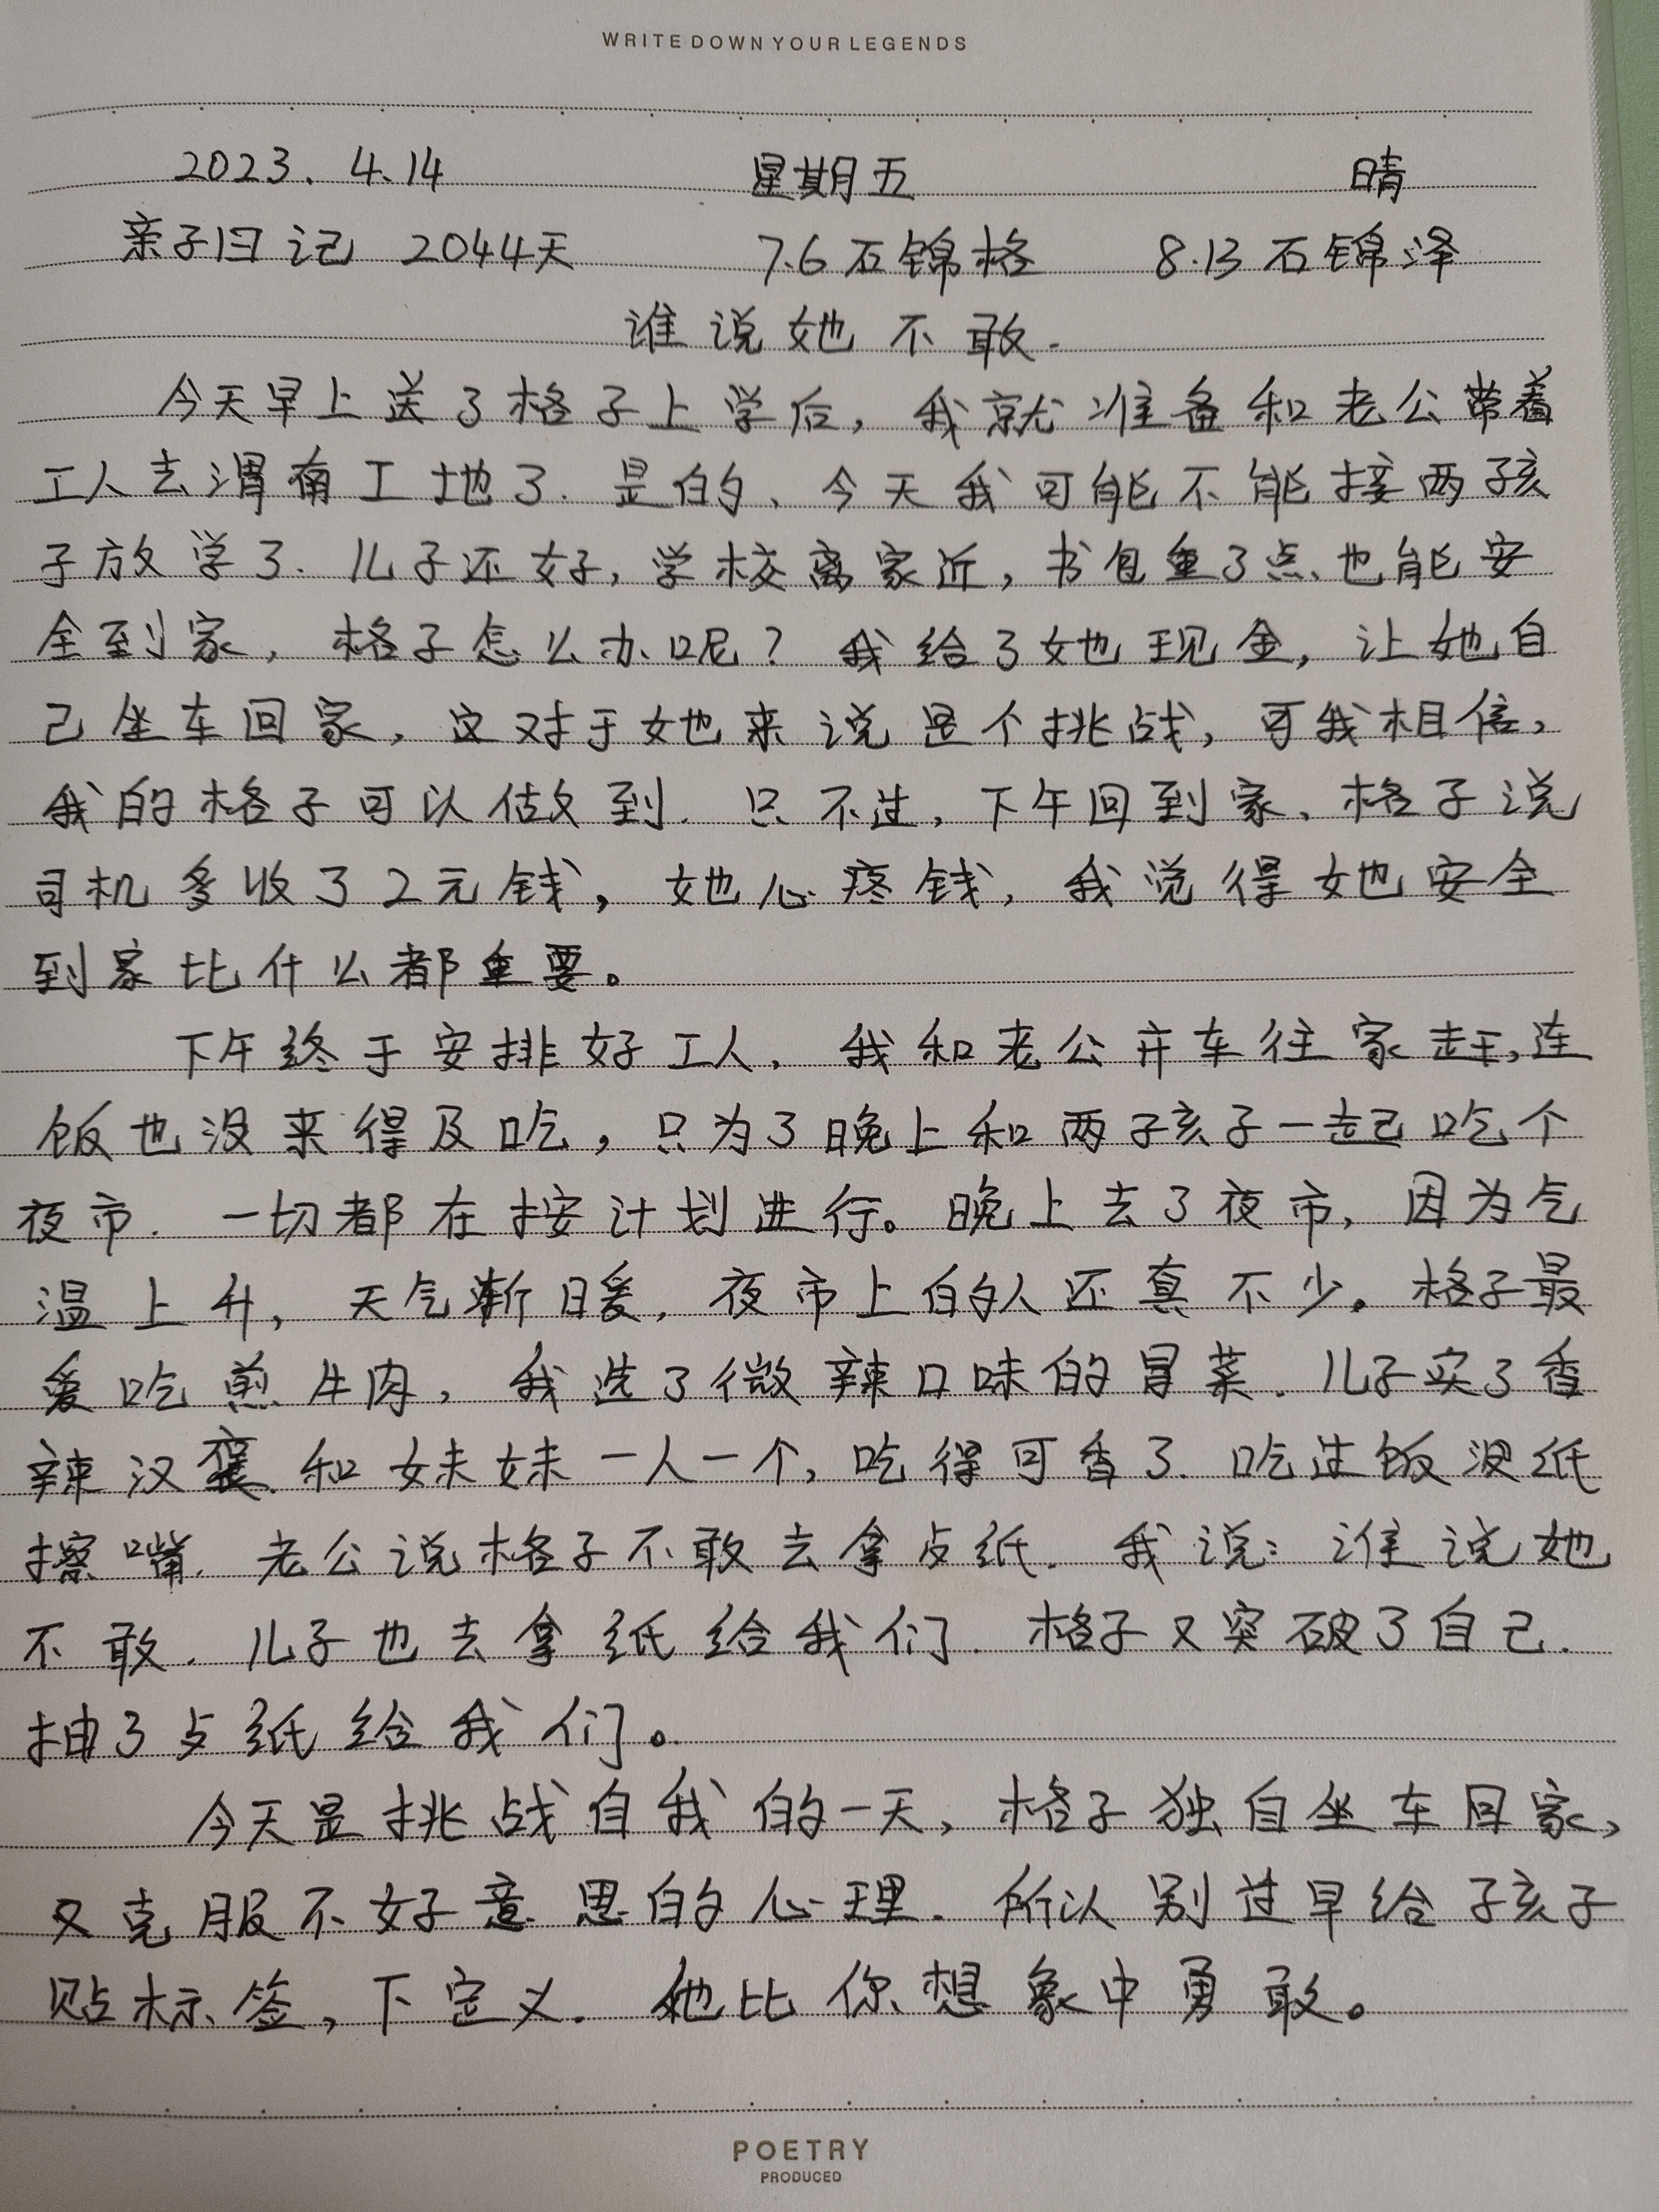 WRITE DOWN YOUR LEGENDS
2023.4.14 星期五 晴
亲子日记 2044天 7.6石锦格 8.13石锦泽
谁说她不敢.
今天早上送了格子上学后,我就准备和老公带着
工人去渭南工地了.是的、今天我可能不能接两孩
子放学了.儿子还好,学校离家近,书包重了点、也能安
全到家,格子怎么办呢?我给了她现金,让她自
己坐车回家,这对于她来说是个挑战,可我相信,
我的格子可以做到.只不过,下午回到家、格子说
司机多收了2元钱,她心疼钱,我觉得她安全
到家比什么都重要。
下午终于安排好工人,我和老公开车往家赶,连
饭也没来得及吃,只为了晚上和两孩子一起吃个
夜市.一切都在按计划进行。晚上去了夜市,因为气
温上升,天气渐暖,夜市上的人还真不少。格子最
爱吃煎牛肉,我选了微辣口味的冒菜.儿子买了香
辣汉堡.和妹妹一人一个,吃得可香了.吃过饭没纸
擦嘴.老公说格子不敢去拿点纸.我说:谁说她
不敢.儿子也去拿纸给我们.格子又突破了自己.
抽了点纸给我们。
今天是挑战自我的一天,格子独自坐车回家,
又克服不好意思的心理.所以别过早给孩子
贴标签,下定义.她比你想象中勇敢。
POETRY
PRODUCED